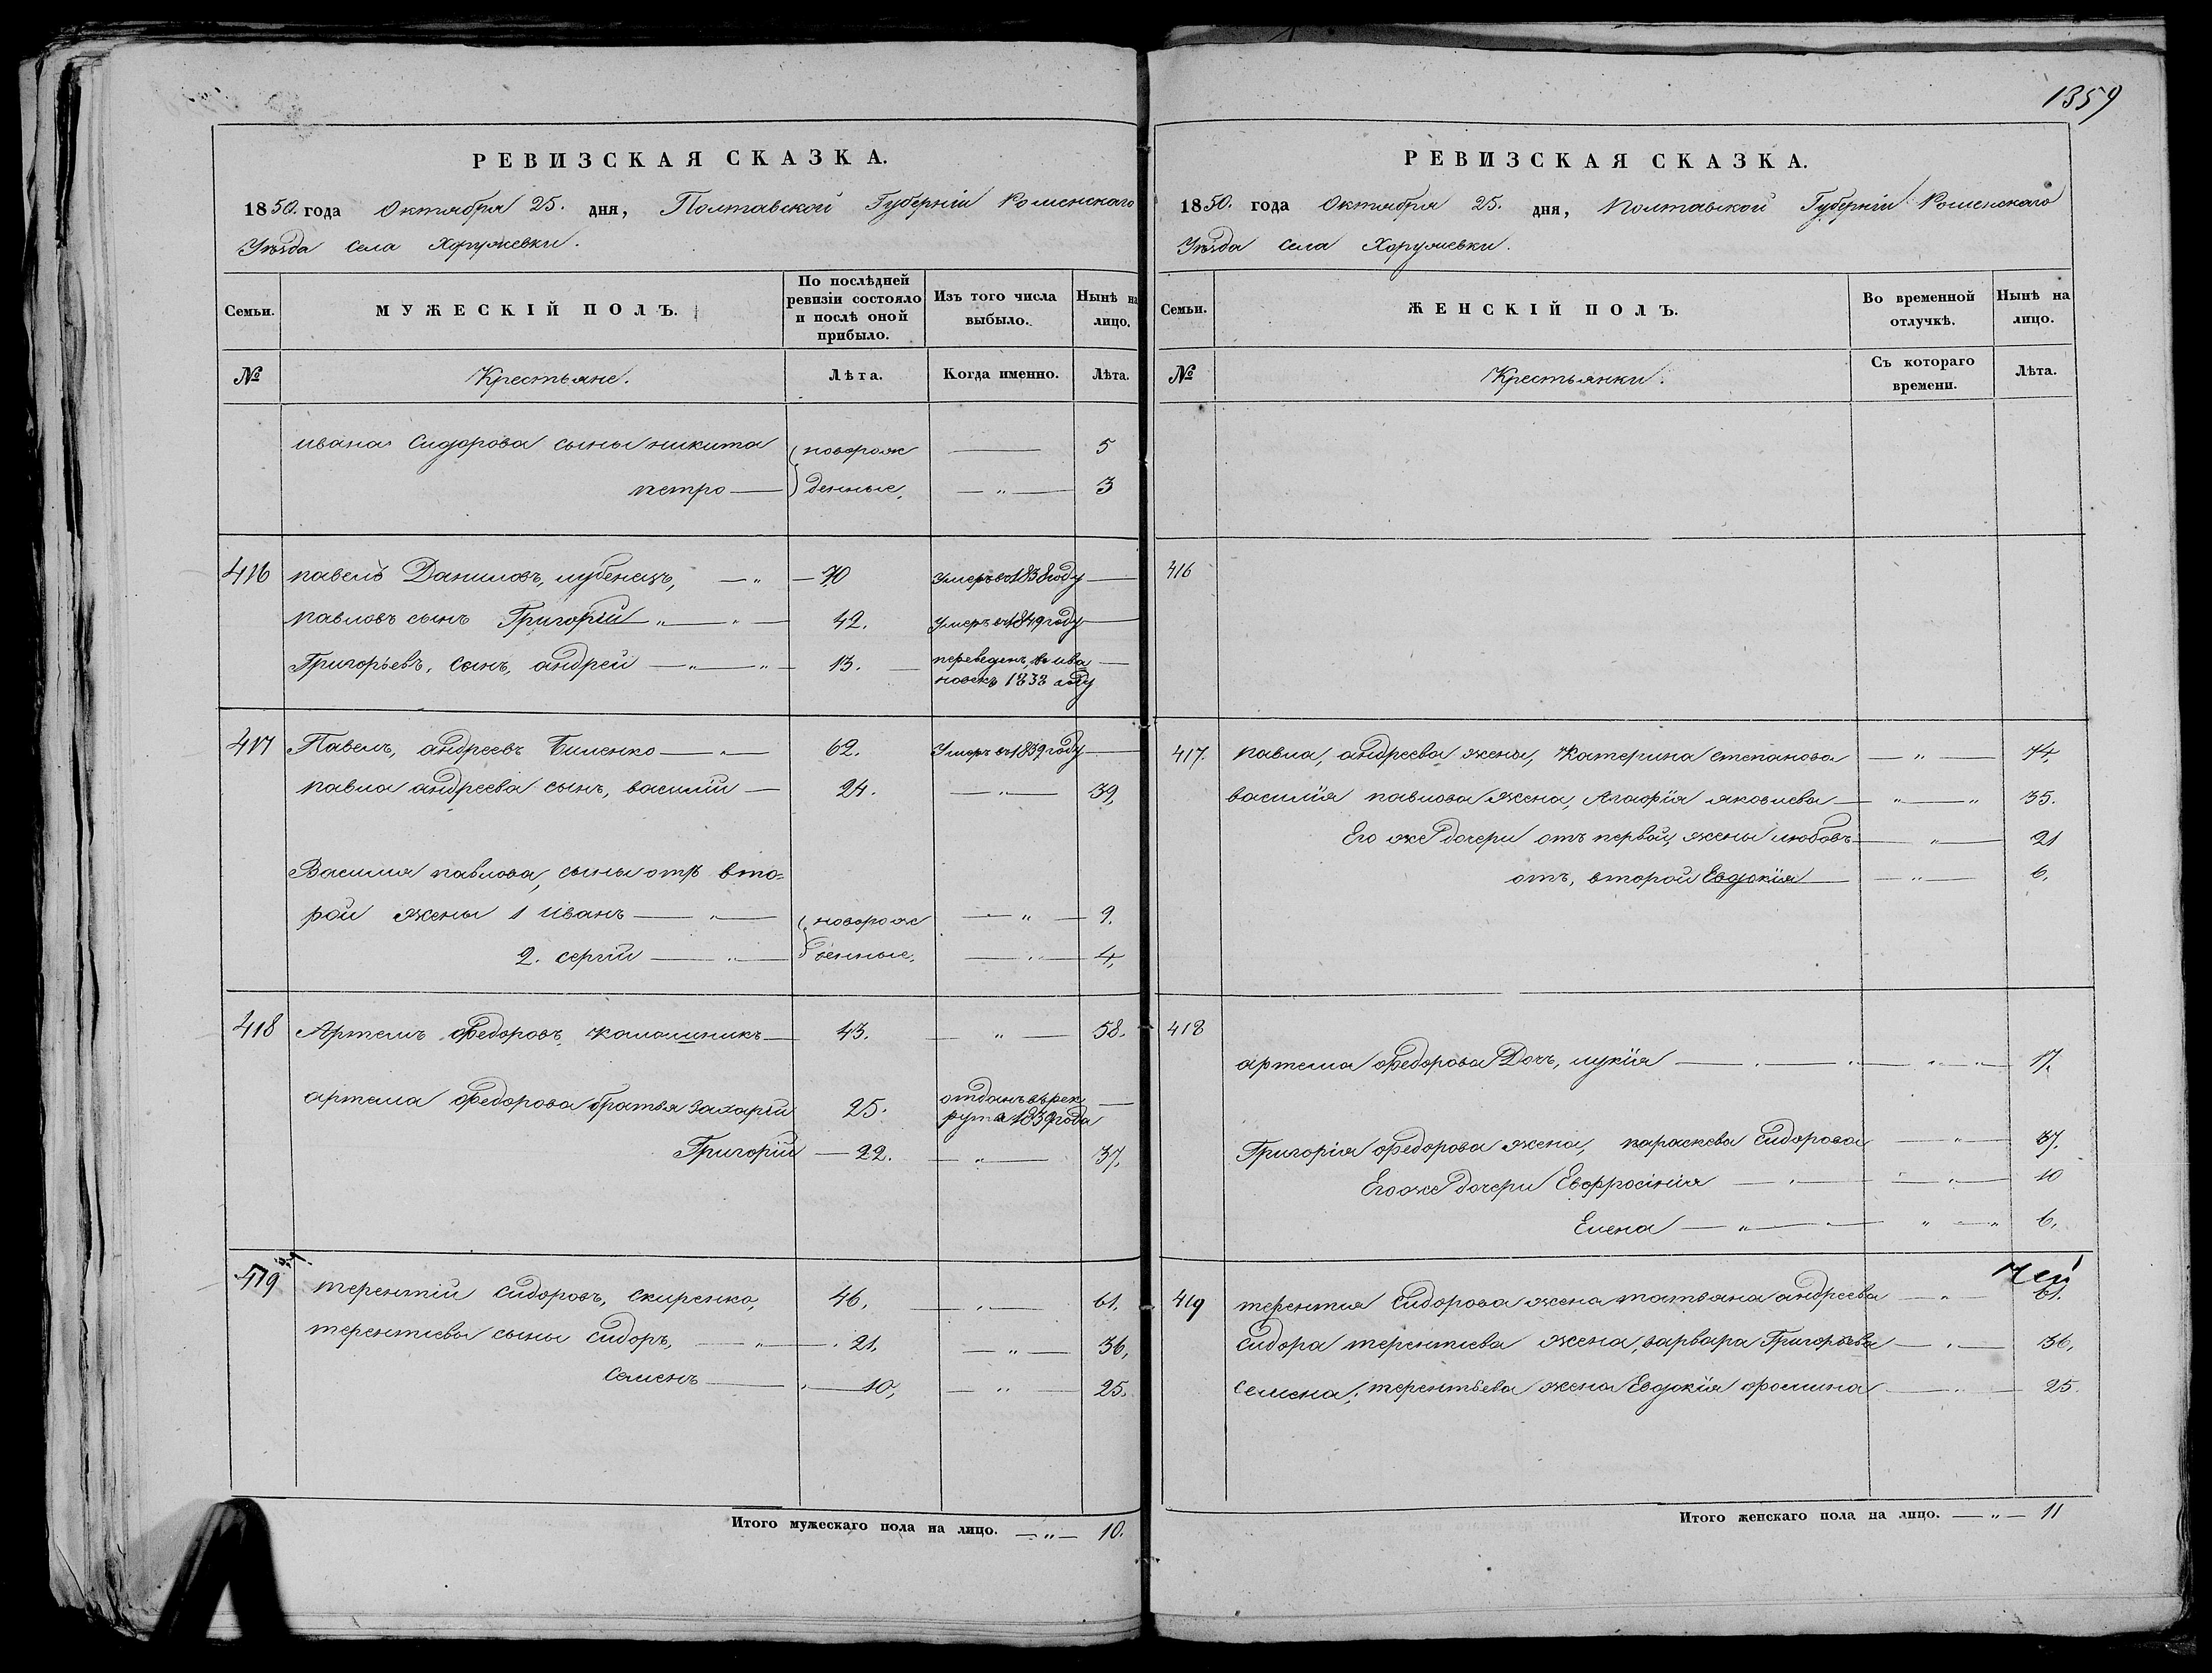 1359
РЕВИЗСКАЯ СКАЗКА.
1850. года Октября 25. дня, Полтавской Губерніи Роменскаго
Уѣзда села Хоружевки.
Семьи. МУЖЕСКІЙ ПОЛЪ. По послѣдней ревизіи состояло и послѣ оной прибыло. Изъ того числа выбыло. Нынѣ на лицо.
№ Крестьяне. Лѣта. Когда именно. Лѣта.
ивана Сидорова сыны никита новорож 5
петро денные, 3
416 павелъ Даниловъ, 70 Умеръ въ 1838 году
павловъ сынъ Григорій 42. Умеръ въ 1849 году
Григорьевъ, сынъ, андрей 13. переведенъ, в ива
новскъ 1838 году
417 Павелъ, андреевъ Биленко 62. Умеръ въ 1839 году
павла андреева сынъ, василій 24. 39,
Василия павлова, сыны отъ вто=
рой жены 1 иванъ новорож 9.
2. сергій денные. 4,
418 Артемъ Федоровъ калашникъ 43. 58.
артема Федорова братья захарій 25. отданъ въ рек
рута 1839 года
Григорій 22. 37.
419 терентій Сидоровъ, скиренко, 46. 61.
терентиевы сыны Сидоръ, 21. 36,
Семенъ 10, 25.
Итого мужескаго пола на лицо. 10.
РЕВИЗСКАЯ СКАЗКА.
1850. года Октября 25. дня, Полтавской Губерніи Роменскаго
Уѣзда села Хоружевки.
Семьи. ЖЕНСКІЙ ПОЛЪ. Во временной отлучкѣ. Нынѣ на лицо.
№ Крестьянки. Съ котораго времени. Лѣта.
416
417. павла, андреева жена, Катерина степанова 74,
василія павлова жена, Агафія яковлева 35.
Его же дочери отъ первой, жены любовъ 21
отъ, второй Евдокія 6.
418
артема Федорова Дочъ, лукія 17.
Григорія Федорова жена, параскева Сидорова 37.
Его же дочери Евфросінія 10
Елена 6,
419 терентия Сидорова жена татьяна андреева 61.
Сидора терентиева жена, варвара Григорьева 36,
Семена, терентьева жена Евдокія фомина 25.
Итого женскаго пола на лицо. 11